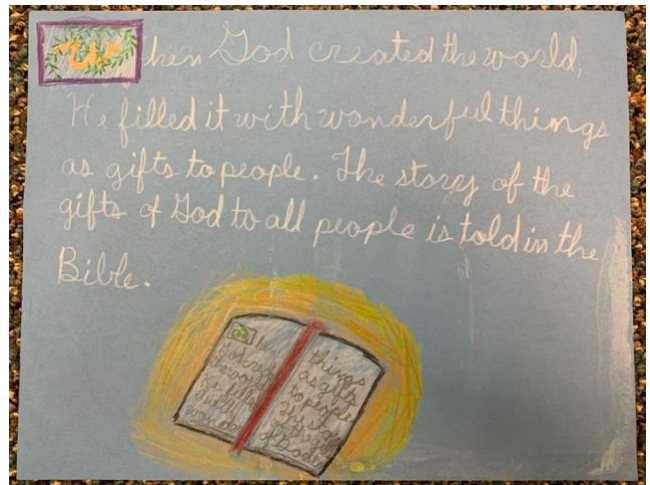 When God created the world,
He filled it with wonderful things
as gifts to people. The story of the
gifts of God to all people is told in the
Bible.
things
as gifts
to people